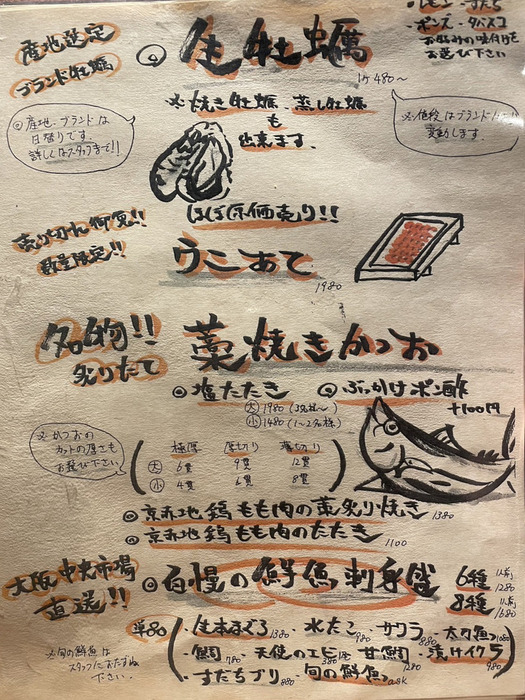 ・レモン・すだち
・ポンズ・タバスコ
お好みの味付けを
お選び下さい
産地選定
ブランド牡蠣
◎生牡蠣
1ヶ480〜
※焼き牡蠣、蒸し牡蠣
も
出来ます。
◎産地・ブランドは
日替りです。
詳しくはスタッフまで!!
※値段はブランド
変動します。
ほぼ原価売り!!
売り切れ御免!!
数量限定!!
うにあて
1980
名物!!
炙りたて
藁焼きかつお
◎塩たたき
◎ぶっかけポン酢
+100円
大 1980 (3名様〜)
小 1480 (1〜2名様)
※かつおの
カットの厚さも
お選び下さい。
極厚 厚切り 薄切り
大 6貫 9貫 12貫
小 4貫 6貫 8貫
◎京赤地鶏もも肉の藁炙り焼き 1380
◎京赤地鶏もも肉のたたき 1100
大阪中央市場
直送!!
◎自慢の鮮魚刺身盛
6種 1人前 1280
8種 1人前 1680
単品
生本まぐろ 1380・水たこ 980・サワラ 880・太刀魚 1080
・鯛 780・天使のエビ 1匹 380・甘鯛 1280・漬けイクラ 980
・すだちブリ 880・旬の鮮魚 ask
※旬の鮮魚は
スタッフにおたずね
下さい。